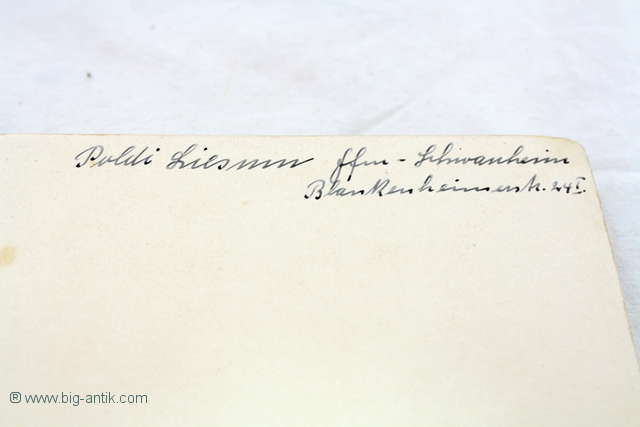 Poldi Liesum ffm - Schwanheim
Blankenheimerstr. 24 I.
® www.big-antik.com